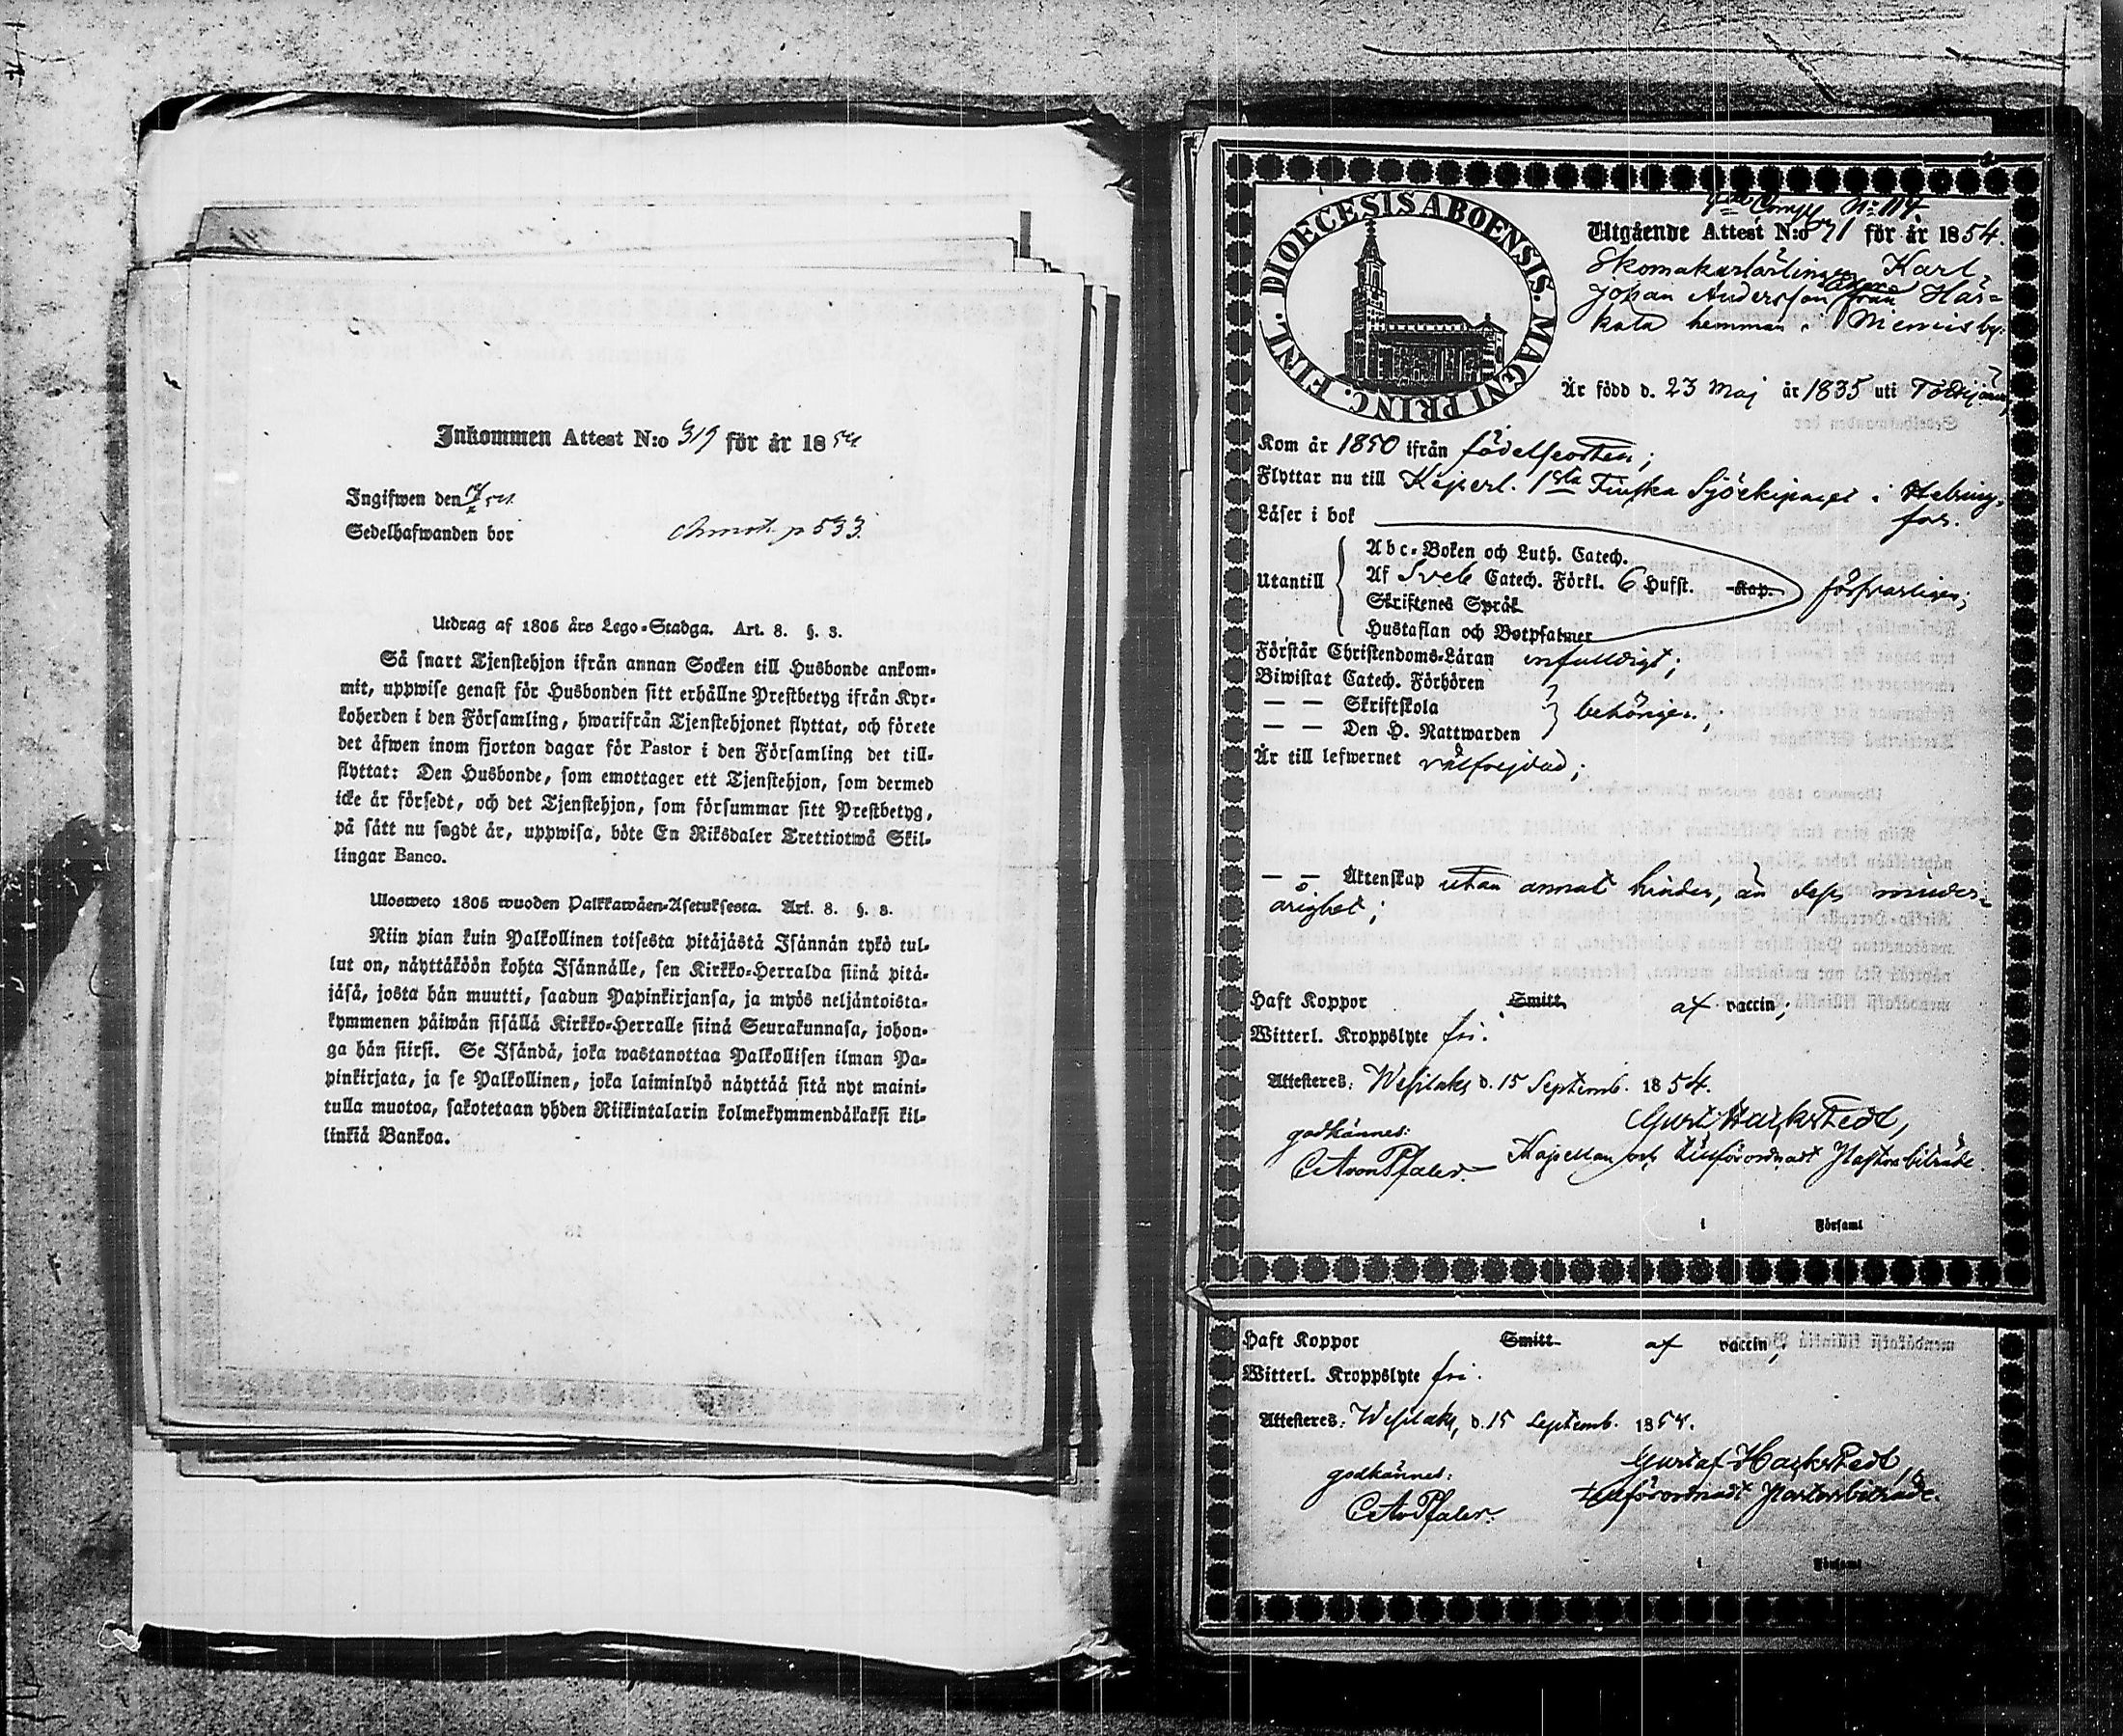 Inkommen Attest N:o 319 för år 1854
Ingifwen den
Sedelhafwanden bor p 533.
Utdrag af 1805 års Lego-Stadga. Art. 8. §. 3.
Så snart Tjenstehjon ifrån annan Socken till Husbonde ankom-
mit, uppwise genast för Husbonden sitt erhållne Prestbetyg ifrån Kyr-
koherden i den Församling, hwarifrån Tjenstehjonet flyttat, och förete
det äfwen inom fjorton dagar för Pastor i den Församling det till-
flyttat: Den Husbonde, som emottager ett Tjenstehjon, som dermed
icke är försedt, och det Tjenstehjon, som försummar sitt Prestbetyg,
på sätt nu sagdt är, uppwisa, böte En Riksdaler Trettiotwå Skil-
lingar Banco.
Ulosweto 1805 wuoden Palkkawäen-Asetuksesta. Art. 8. §. 3.
Niin pian kuin Palkollinen toisesta pitäjästä Isännän tykö tul-
lut on, näyttäköön kohta Isännälle, sen Kirkko-Herralda siinä pitä-
jäsä, josta hän muutti, saadun Papinkirjansa, ja myös neljäntoista-
kymmenen päiwän sisällä Kirkko-Herralle siinä Seurakunnasa, johon-
ga hän siirsi. Se Isändä, joka wastanottaa Palkollisen ilman Pa-
pinkirjata, ja se Palkollinen, joka laiminlyö näyttää sitä nyt maini-
tulla muotoa, sakotetaan yhden Riikintalarin kolmekymmendäkaksi kil-
linkiä Bankoa.
DIOECESIS ABOENSIS. MAGNI PRINC. FINL.
Comp N:o 114
Utgående Attest N:o 71 för år 1854.
Skomakarlärlingen Karl
Johan Andersson från Här-
kälä hemman i Niemis by.
Är född d. 23 Maj år 1835 uti
Kom år 1850 ifrån födelseorten;
Flyttar nu till Kejserl. 1sta Finska Sjöekipaget i Helsing-
fors.
Läser i bok
Utantill
Abc-Boken och Luth. Catech.
Af Sveb Catech. Förkl. 6 Hufst. Kap. försvarligen;
Skriftenes Språk
Hustaflan och Botpsalmer
Förstår Christendoms-Läran enfaldigt;
Biwistat Catech. Förhören
— — Skriftskola behörigen;
— — Den H. Nattwarden
Är till lefwernet välfrejdad;
— — Äktenskap utan annat hinder, än dess minder-
årighet;
Haft Koppor Smitt af vaccin;
Witterl. Kroppslyte fri.
Attesteres: Wesilaks d. 15 Septemb. 1854.
Gust. Hackstedt,
godkännes: Kapellan och tillförordnadt Pastorsbiträde.
C A von Pfaler.
i Församl
Haft Koppor Smitt af vaccin,
Witterl. Kroppslyte fri.
Attesteres: Wesilaks, d. 15 Septemb. 1854.
Gustaf Hackstedt,
godkännes: tillförordnadt Pastorsbiträde.
C A v Pfaler.
i Församl